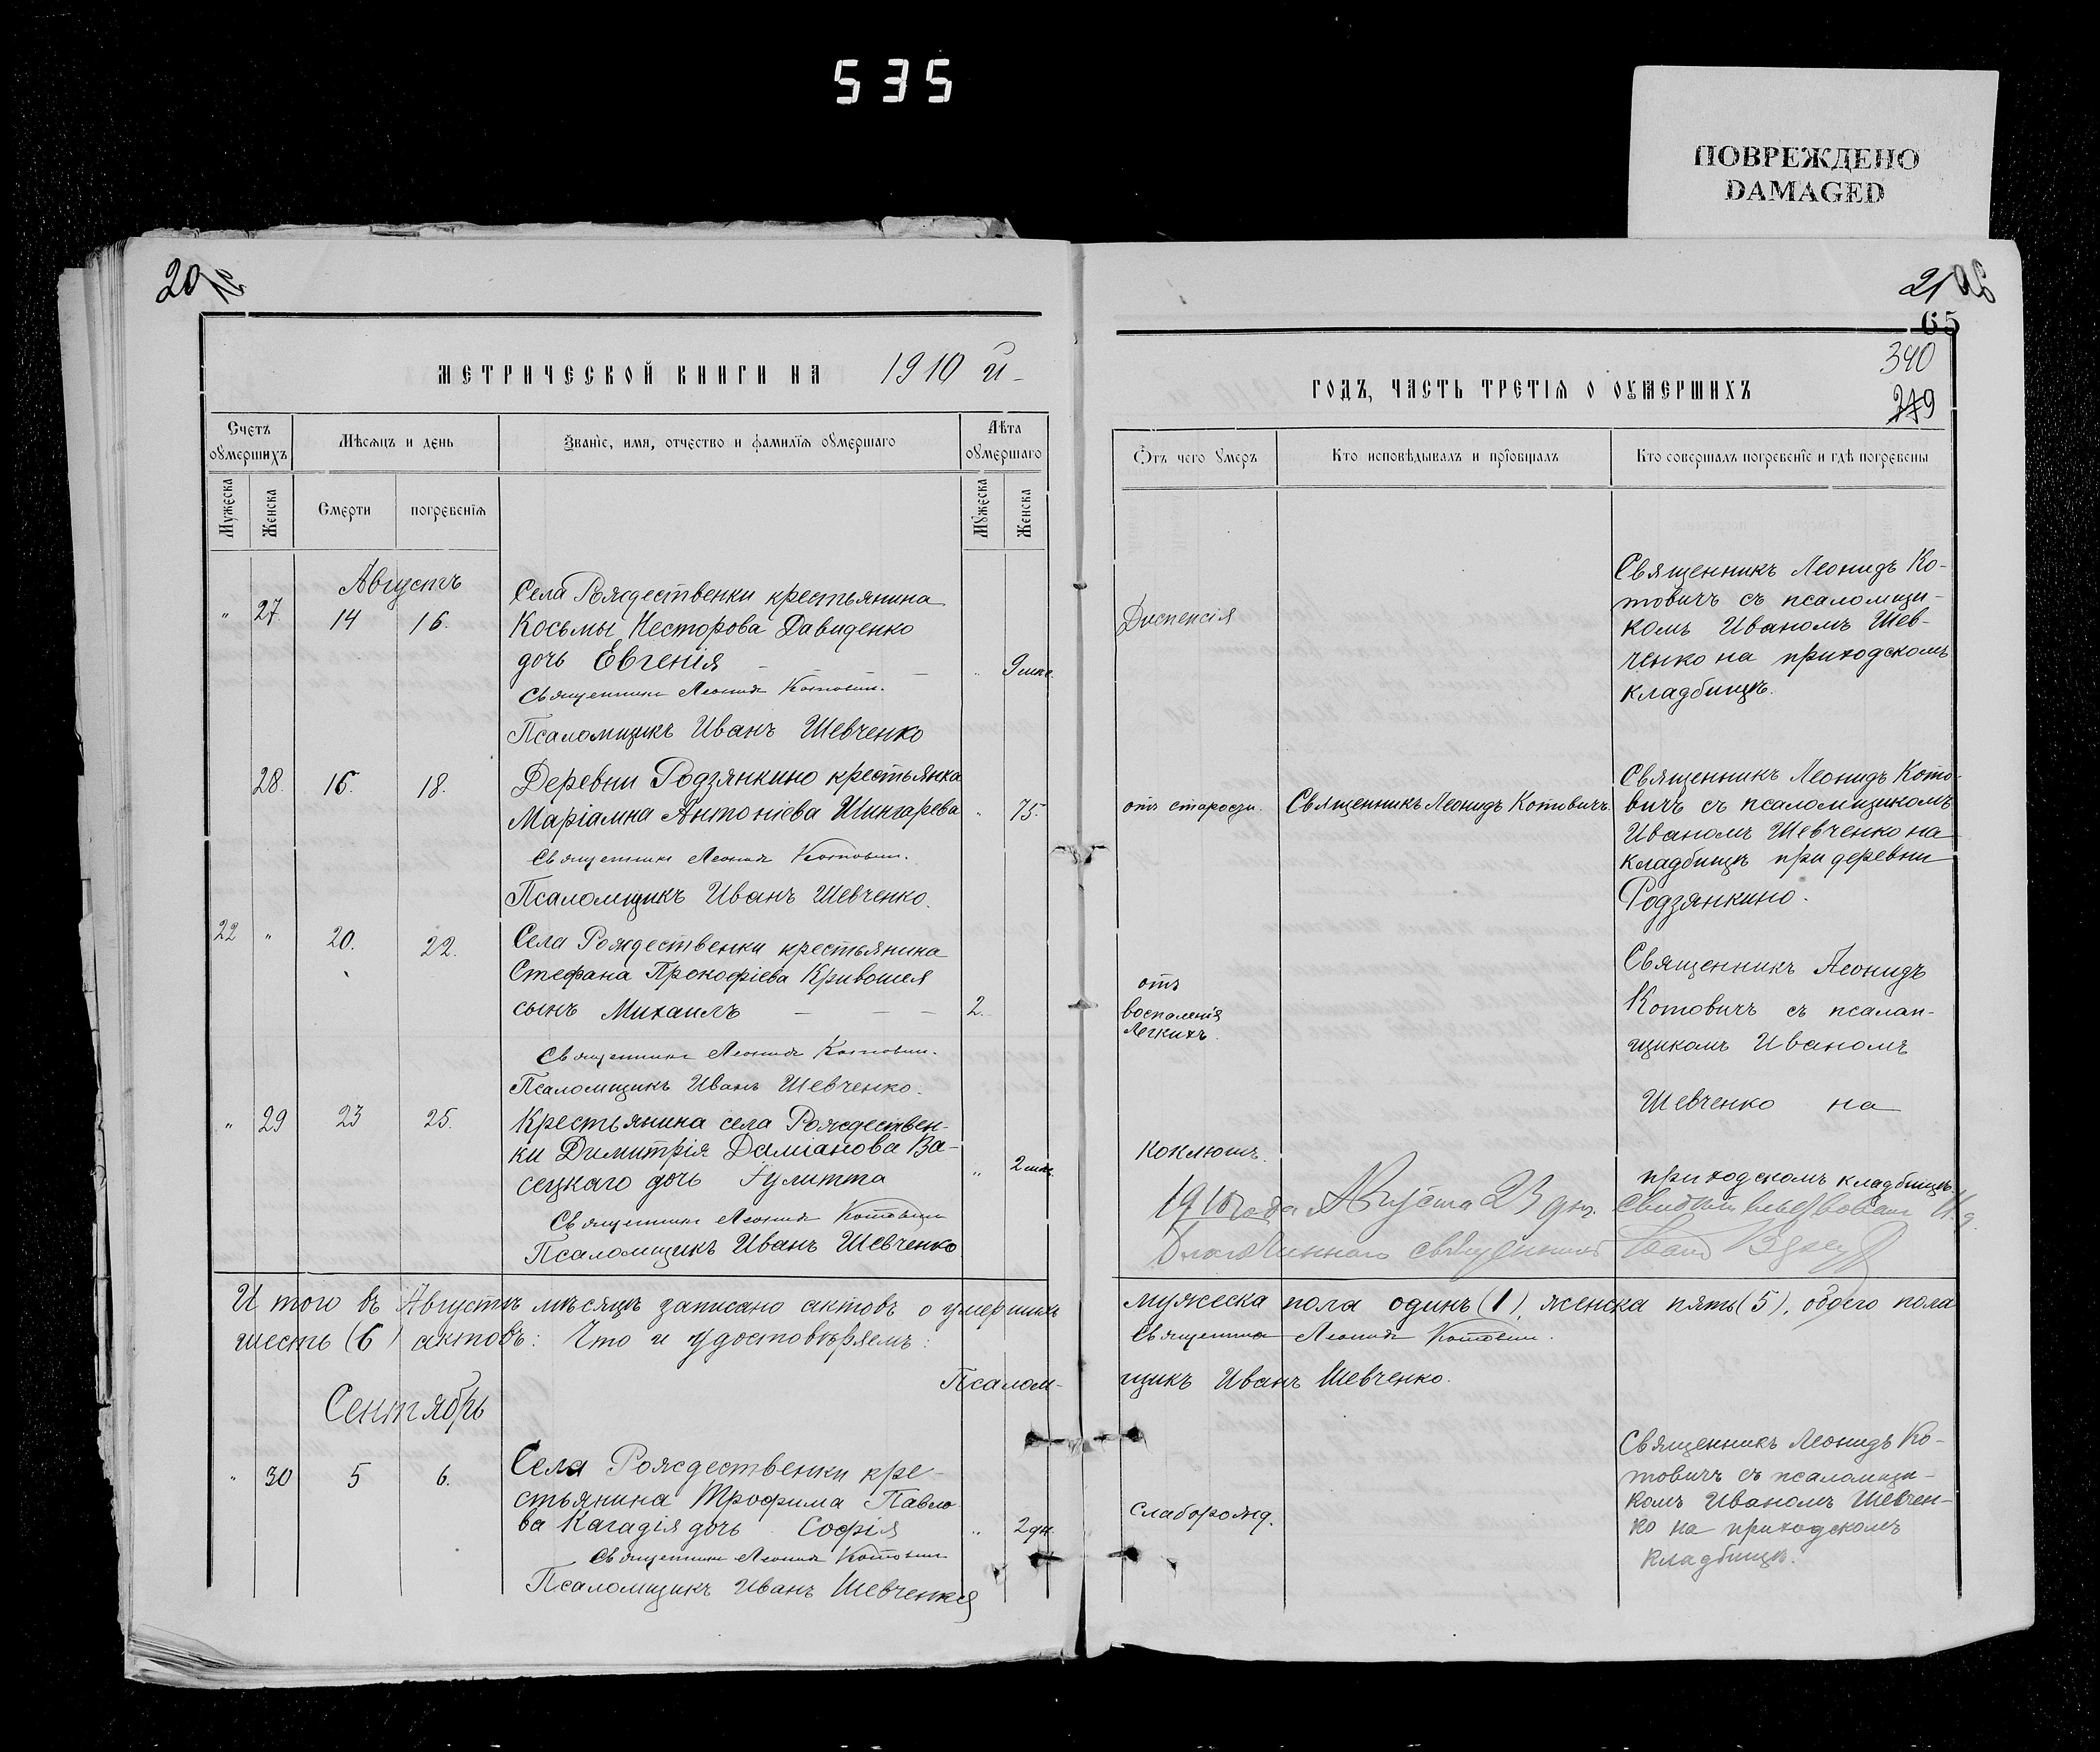 535
ПОВРЕЖДЕНО
DAMAGED
20
21
65
340
249
МЕТРИЧЕСКОЙ КНИГИ НА 1910 й
ГОДЪ, ЧАСТЬ ТРЕТІѦ О ОУМЕРШИХЪ
Счетъ оумершихъ
Мѣсяцъ и день
Званіе, имя, отчество и фамиліѧ оумершаго
Лѣта оумершаго
Мужеска
Женска
Смерти
погребеніѧ
Мужеска
Женска
Отъ чего умеръ
Кто исповѣдывалъ и пріобщалъ
Кто совершалъ погребеніе и гдѣ погребены
Августъ
" 27 14 16.
Села Рождественки крестьянина
Косьмы Несторова Давиденко
дочь Евгенія " 9 мѣс.
Священникъ Леонидъ Котовичъ.
Псаломщикъ Иванъ Шевченко
Диспепсія
Священникъ Леонидъ Ко-
товичъ съ псаломщи-
комъ Иваномъ Шев-
ченко на приходскомъ
кладбищѣ.
28. 16. 18.
Деревни Родзянкино крестьянка
Маріамна Антоніева Шингарева " 75.
Священникъ Леонидъ Котовичъ.
Псаломщикъ Иванъ Шевченко.
отъ старости.
Священникъ Леонидъ Котовичъ.
Священникъ Леонидъ Кото-
вичъ съ псаломщикомъ
Иваномъ Шевченко на
кладбищѣ при деревни
Родзянкино.
22 " 20. 22.
Села Рождественки крестьянина
Стефана Прокофіева Кривошея
сынъ Михаилъ — — — 2.
Священникъ Леонидъ Котовичъ.
Псаломщикъ Иванъ Шевченко.
отъ
воспаленія
легкихъ.
Священникъ Леонидъ
Котовичъ съ псалом-
щикомъ Иваномъ
Шевченко на
приходскомъ кладбищѣ.
" 29 23 25.
Крестьянина села Рождествен-
ки Димитрія Даміанова Ва-
сецкаго дочь Іулитта " 2 мѣс.
Священникъ Леонидъ Котовичъ
Псаломщикъ Иванъ Шевченко
Коклюшъ.
1910 года Августа 23 дня. свидѣтельствовалъ И. д.
Благочиннаго священникъ Іоаннъ
Итого въ Августѣ мѣсяцѣ записано актовъ о умершихъ
мужеска пола одинъ (1), женска пять (5), обоего пола
шесть (6) актовъ: Что и удостовѣряемъ:
Священникъ Леонидъ Котовичъ.
Псалом-
щикъ Иванъ Шевченко.
Сентябрь
" 30 5 6.
Села Рождественки кре-
стьянина Трофима Павло-
ва Кагадія дочь София " 2 дн.
Священникъ Леонидъ Котовичъ
Псаломщикъ Иванъ Шевченко
Слаборожд.
Священникъ Леонидъ Ко-
товичъ съ псаломщи-
комъ Иваномъ Шевчен-
ко на приходскомъ
кладбищѣ.